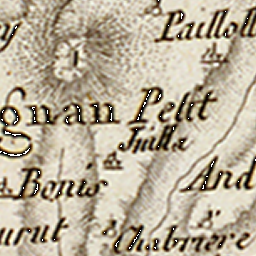 Paillol
gnan Petit
Juilla
Bonis
And
urut
Chabriere